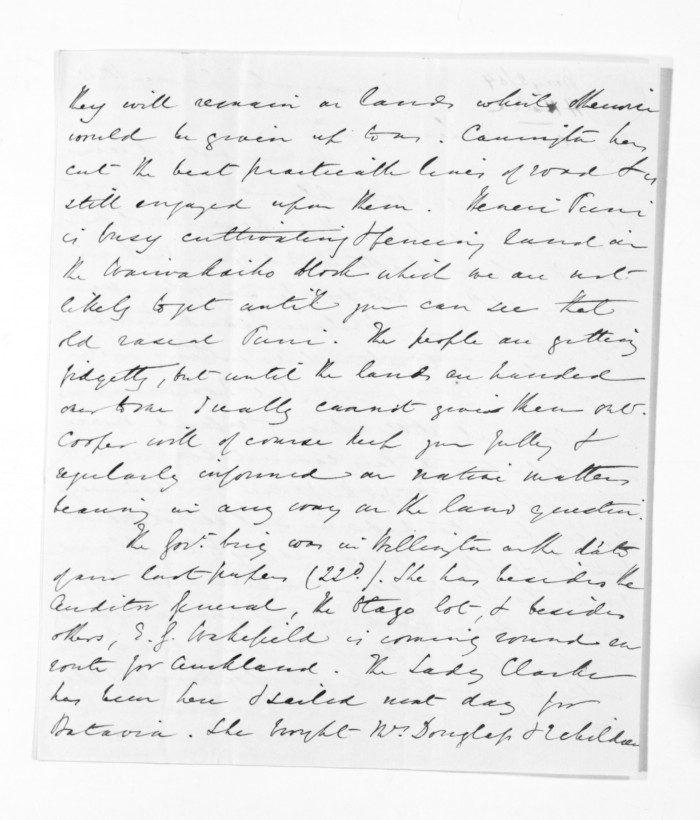 they will remain on lands which otherwise
would be given up to us. Carrington has
cut the best practicable lines of road & is
still engaged upon them. Puni
is busy cultivating & fencing land in
the Waiwakaiho block which we are not
likely to get until you can see that
old rascal Puni. The people are getting
fidgetty, but until the lands are handed
over to me I really cannot give them out.
Cooper will of course keep you fully &
regularly informed on native matters
bearing in any way on the land question.
The Govt. brig was in Wellington on the date
of our last papers (22d.). She has besides the
Auditor General, the Otago lot, & besides
others, E. G. Wakefield is coming round en
route for Auckland. The Lady Clarke
has been here & sailed next day for
Batavia. She brought Mrs Douglass & 2 children